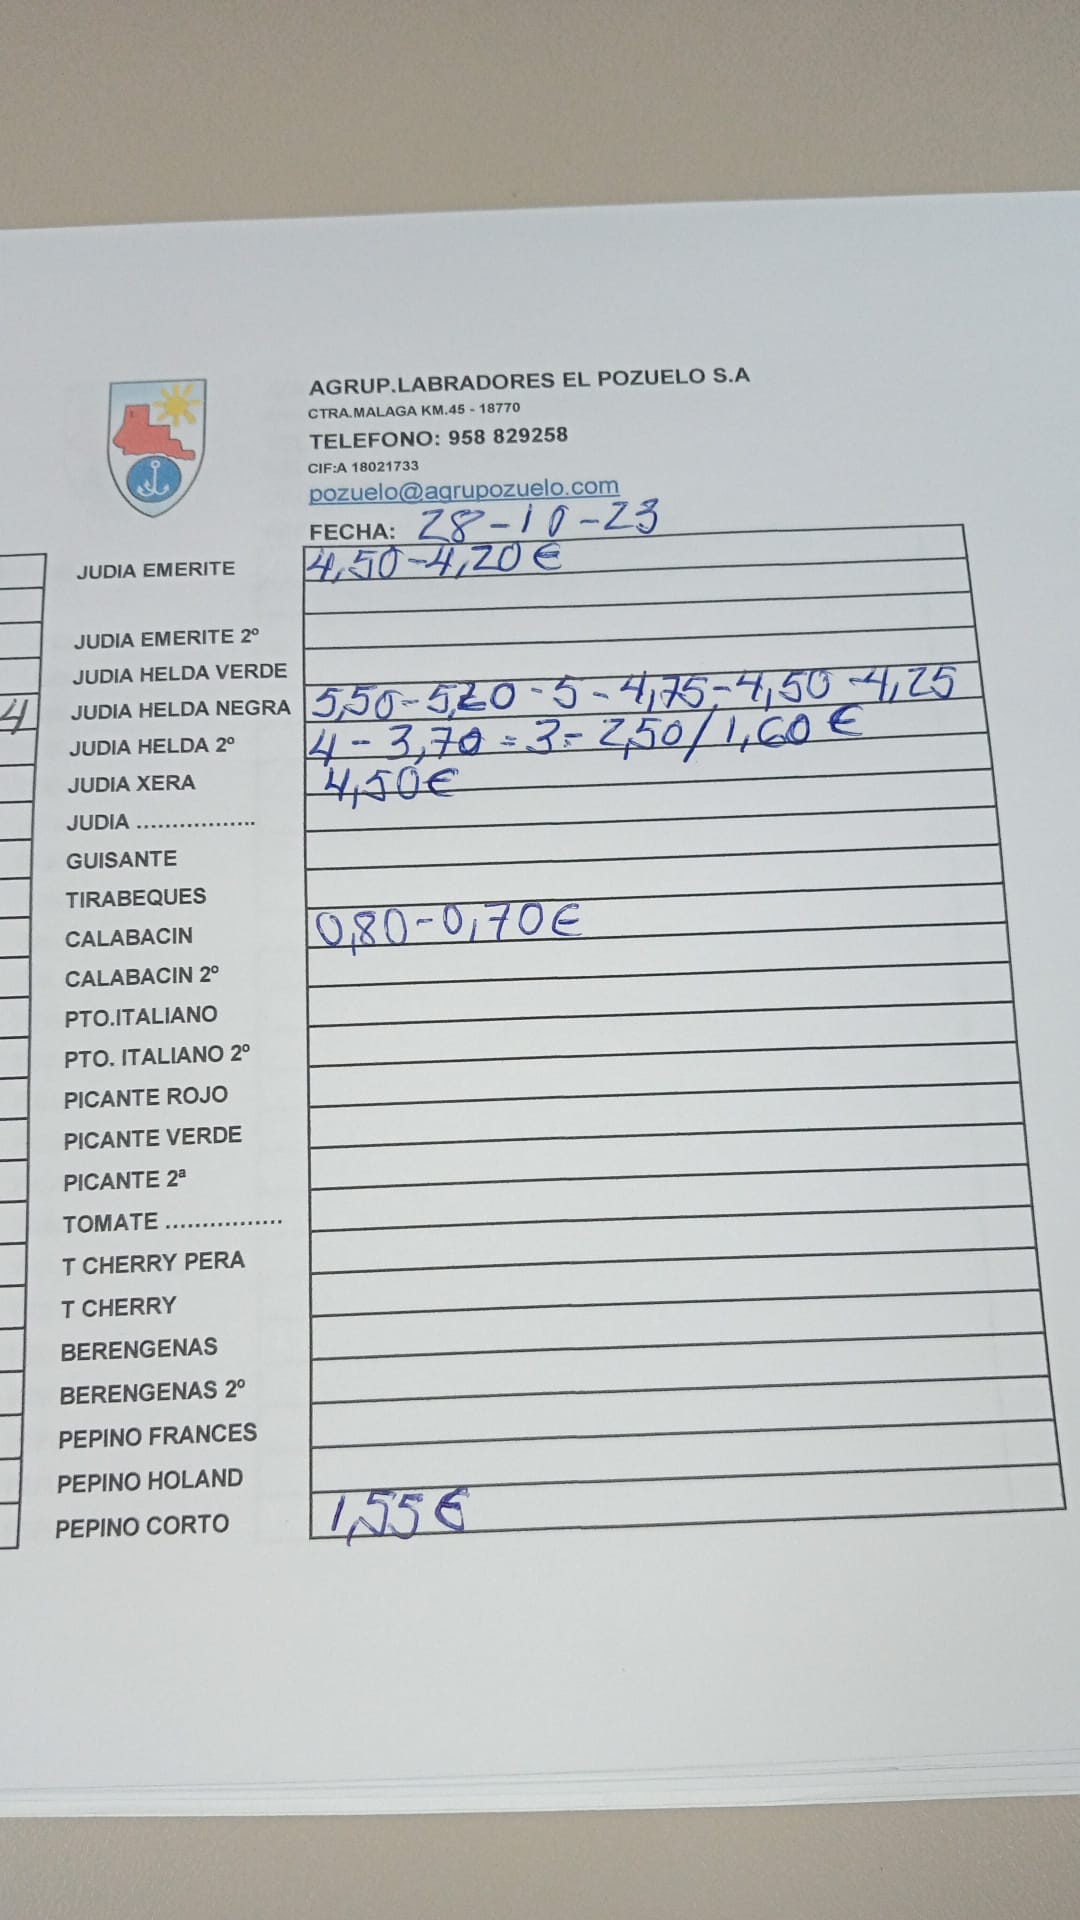 AGRUP.LABRADORES EL POZUELO S.A
CTRA.MALAGA KM.45 - 18770
TELEFONO: 958 829258
CIF:A 18021733
pozuelo@agrupozuelo.com
FECHA: 28-10-23
JUDIA EMERITE 4,50-4,20€
JUDIA EMERITE 2º
JUDIA HELDA VERDE
4 JUDIA HELDA NEGRA 5,50-5,20-5-4,75-4,50-4,25
JUDIA HELDA 2º 4-3,70=3=2,50/1,60€
JUDIA XERA 4,50€
JUDIA .................
GUISANTE
TIRABEQUES
CALABACIN 0,80-0,70€
CALABACIN 2º
PTO.ITALIANO
PTO. ITALIANO 2º
PICANTE ROJO
PICANTE VERDE
PICANTE 2ª
TOMATE ................
T CHERRY PERA
T CHERRY
BERENGENAS
BERENGENAS 2º
PEPINO FRANCES
PEPINO HOLAND
PEPINO CORTO 1,55€